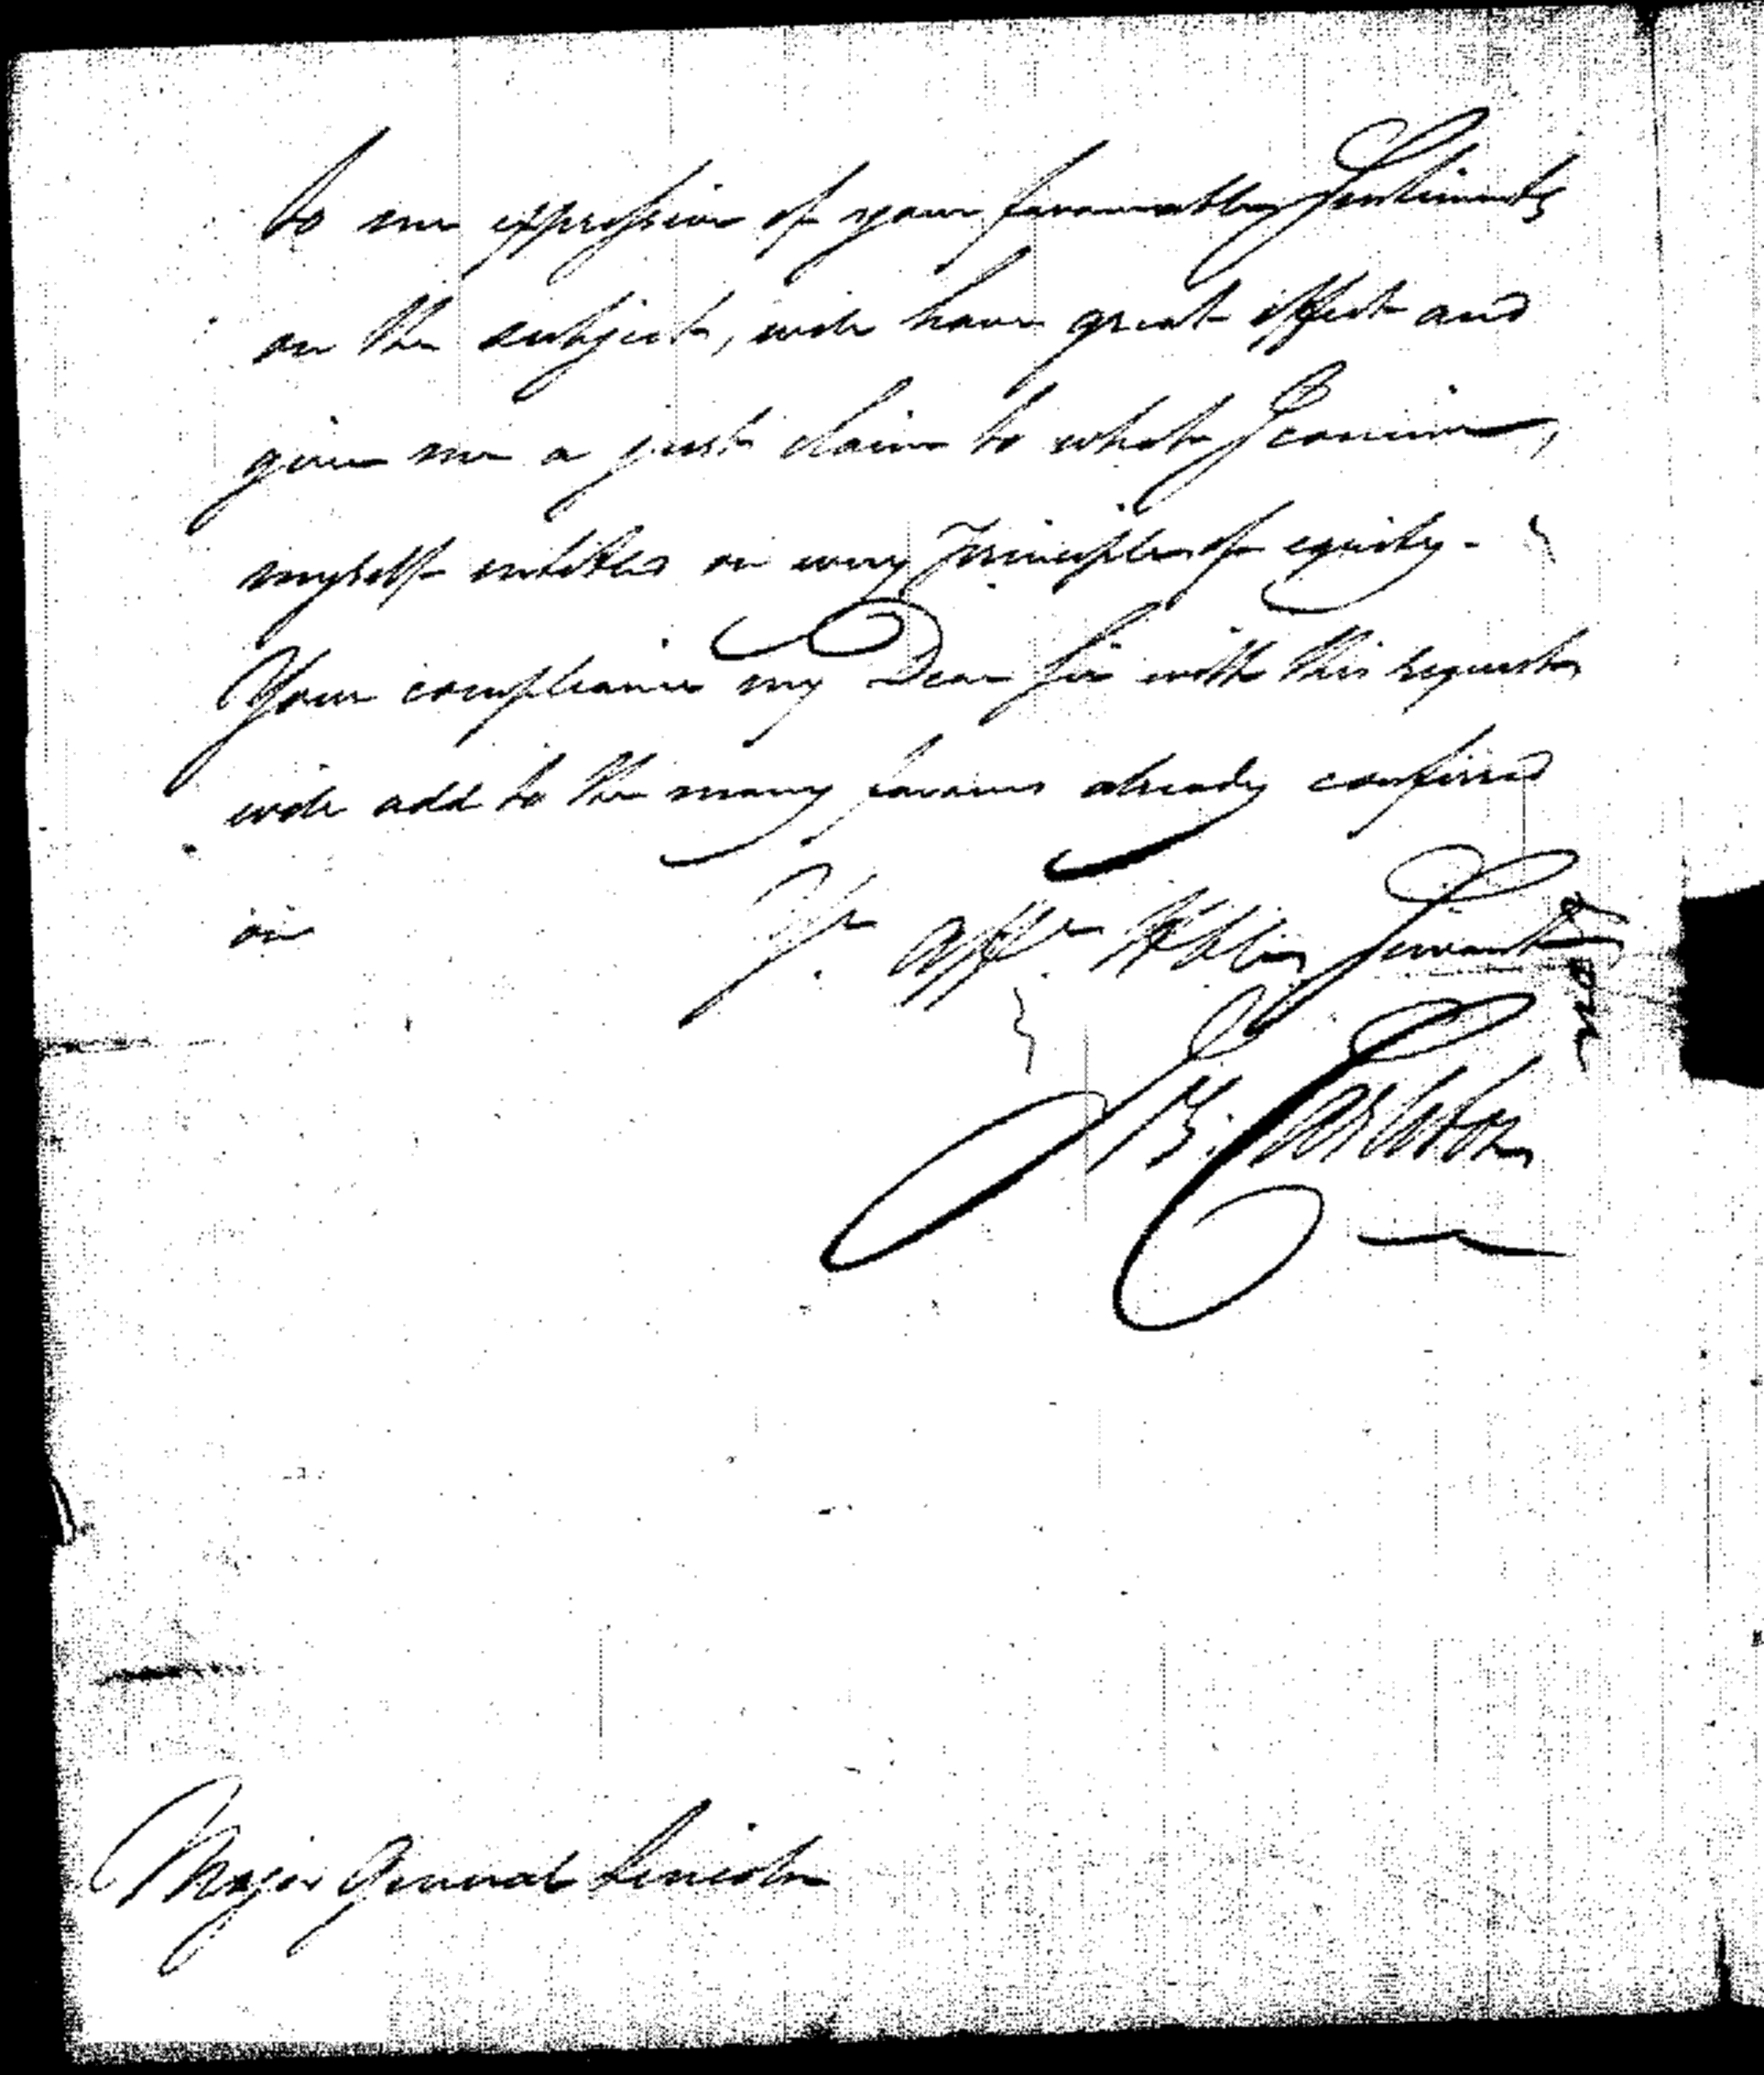 to me expressive of your favourable Sentiments
on the subject, will have great effect and
give me a just claim to what I conceive,
myself entitled on every Principle of equity -
Your compliance my Dear Sir with this request
will add to the many favours already conferred
on
Yr. affte. Hble Servant
Major General Lincoln